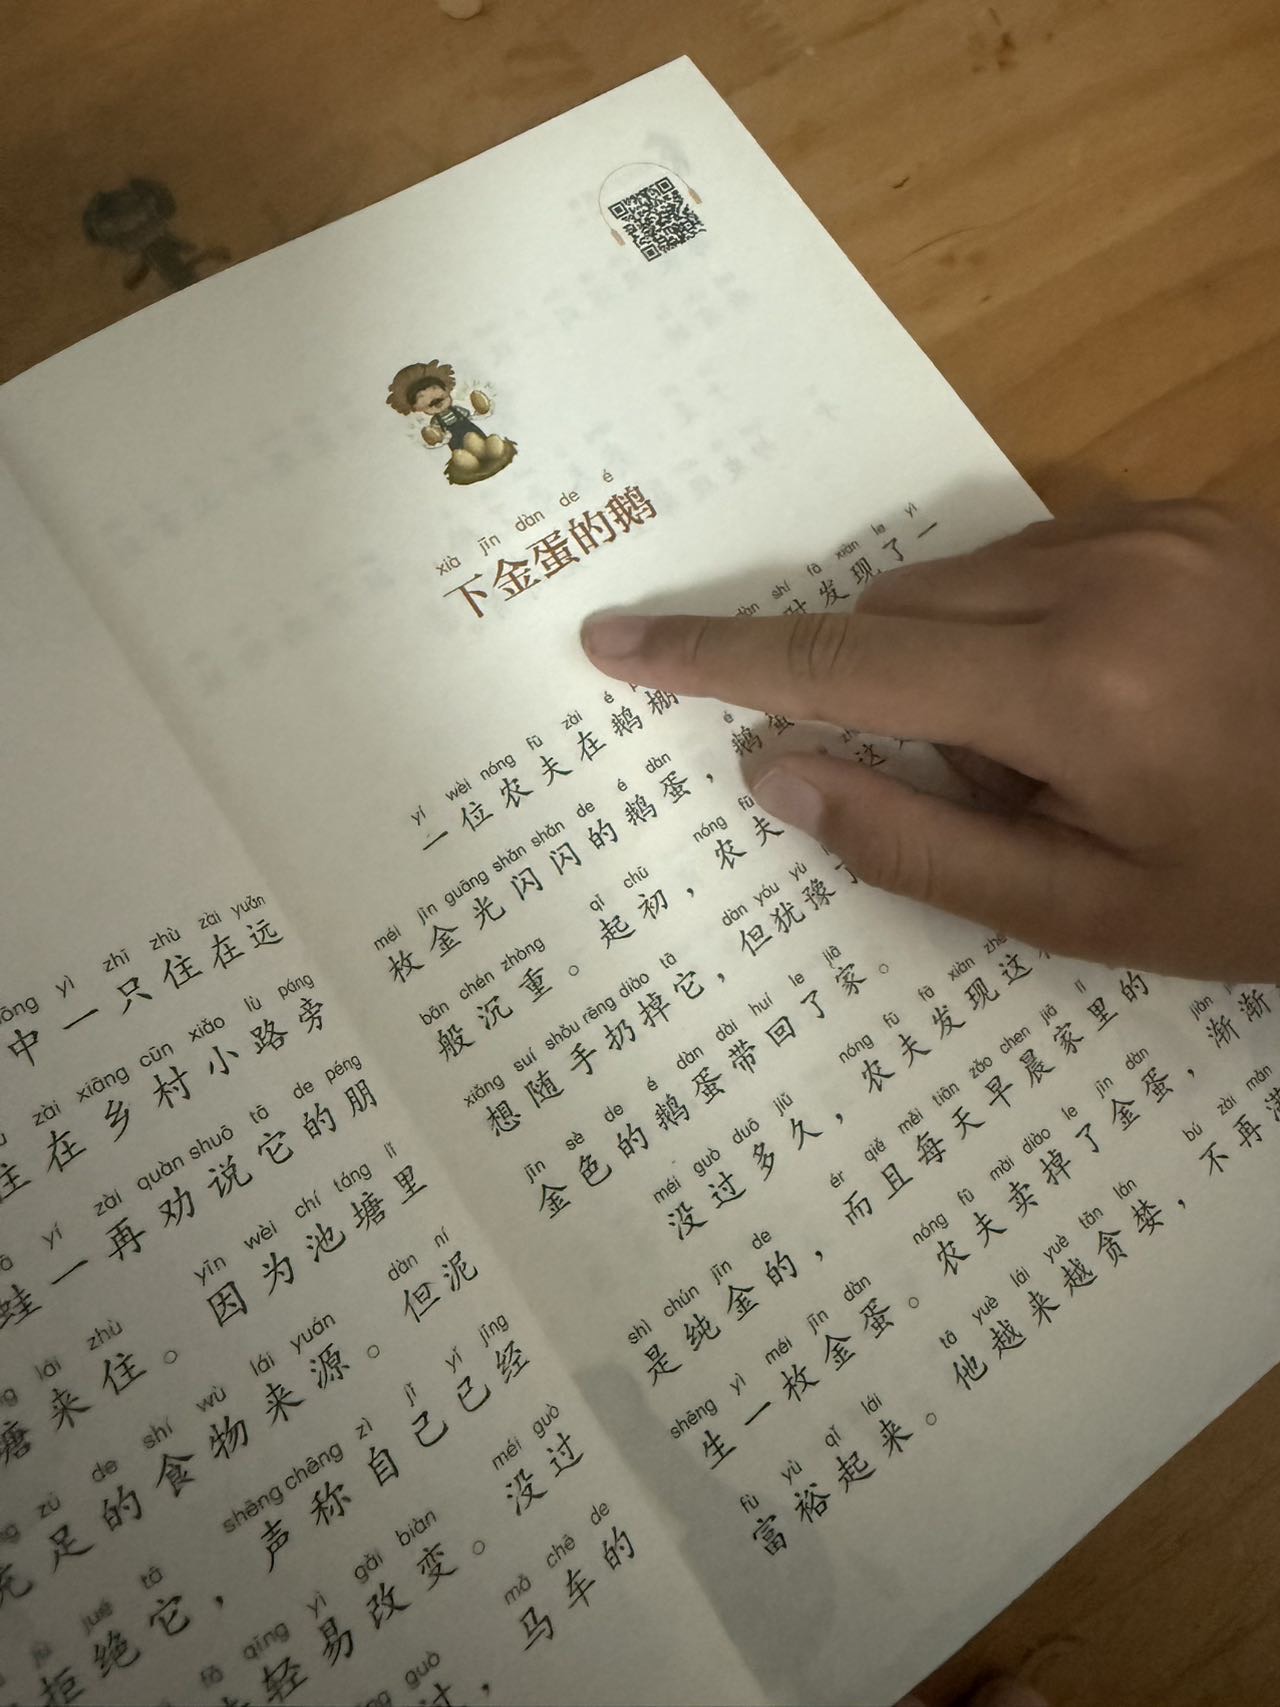 yì zhī zhù zài yuǎn
中一只住在远
zài xiāng cūn xiǎo lù páng
住在乡村小路旁
yí zài quàn shuō tā de péng
蛙一再劝说它的朋
lái zhù yīn wèi chí táng lǐ
塘来住。因为池塘里
zú de shí wù lái yuán dàn ní
充足的食物来源。但泥
jù jué tā shēng chēng zì jǐ yǐ jīng
拒绝它，声称自己已经
qīng yì gǎi biàn méi guò
轻易改变。没过
guò mǎ chē de
过，马车的
xià jīn dàn de é
下金蛋的鹅
yí wèi nóng fū zài é shí fā xiàn le yì
一位农夫在鹅棚时发现了一
méi jīn guāng shǎn shǎn de é dàn é
枚金光闪闪的鹅蛋，鹅蛋
bān chén zhòng qǐ chū nóng fū
般沉重。起初，农夫这
xiǎng suí shǒu rēng diào tā dàn yóu yù
想随手扔掉它，但犹豫了
jīn sè de é dàn dài huí le jiā
金色的鹅蛋带回了家。
méi guò duō jiǔ nóng fū fā xiàn zhè
没过多久，农夫发现这
shì chún jīn de ér qiě měi tiān zǎo chen jiā lǐ
是纯金的，而且每天早晨家里的
shēng yì méi jīn dàn nóng fū mài diào le jīn dàn jiàn
生一枚金蛋。农夫卖掉了金蛋，渐渐
fù yù qǐ lái tā yuè lái yuè tān lán bú zài mǎn
富裕起来。他越来越贪婪，不再满